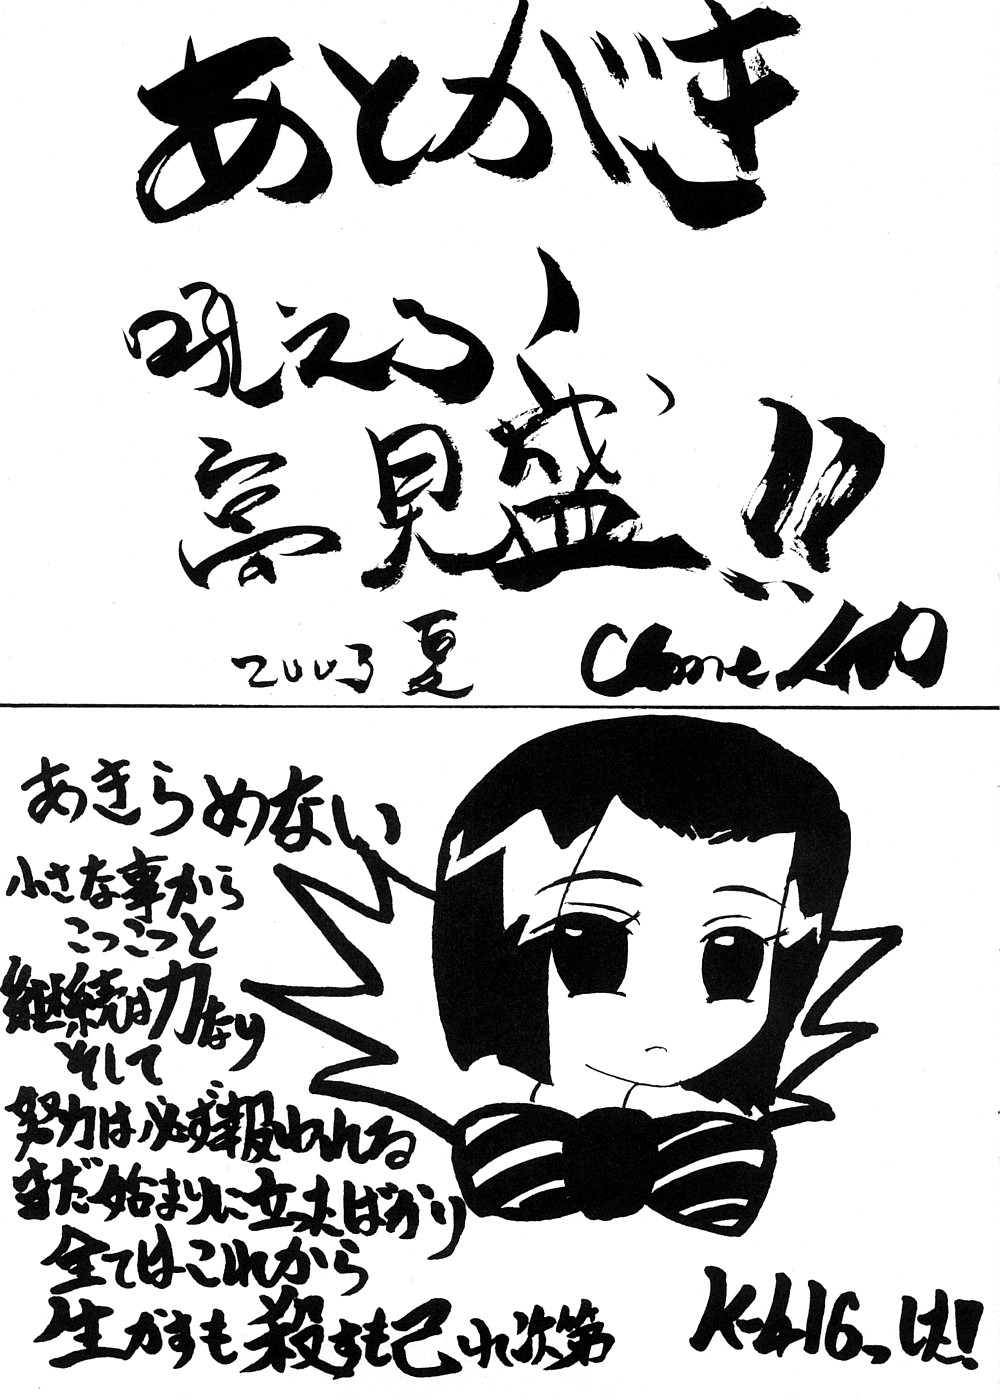 あとがき
吼える
夢見盛!!
2003 夏
あきらめない
小さな事から
こつこつと
継続は力なり
そして
努力は必ず報われる
まだ始まりに立ったばかり
全てはこれから
生かすも殺すも己れ次第
K-616